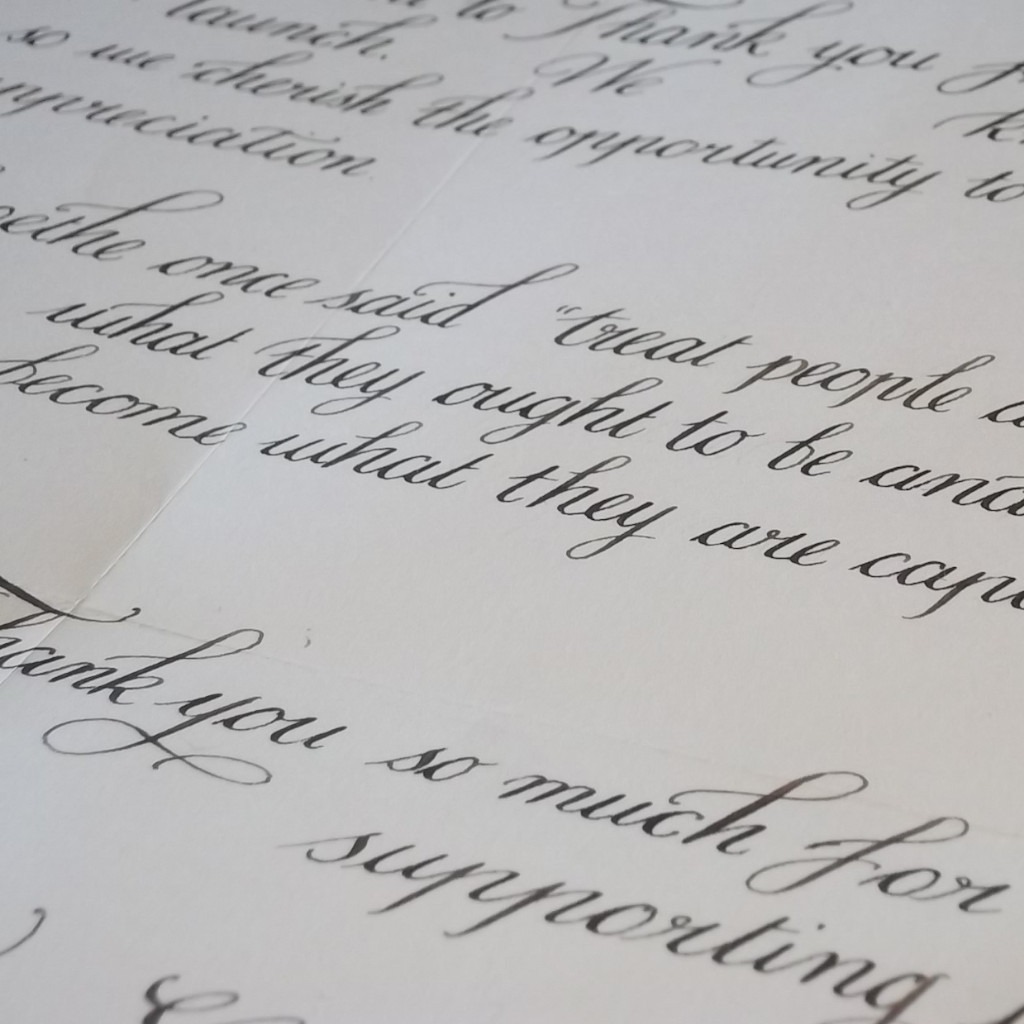 to Thank you
launch. We
so we cherish the opportunity to
appreciation.
Goethe once said "treat people
what they ought to be and
become what they are
Thank you so much for
supporting